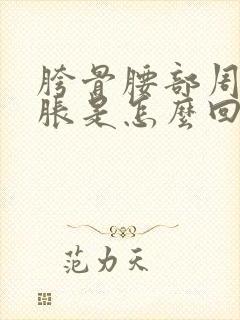 胯骨腰部周
脹是怎麼回
范力天